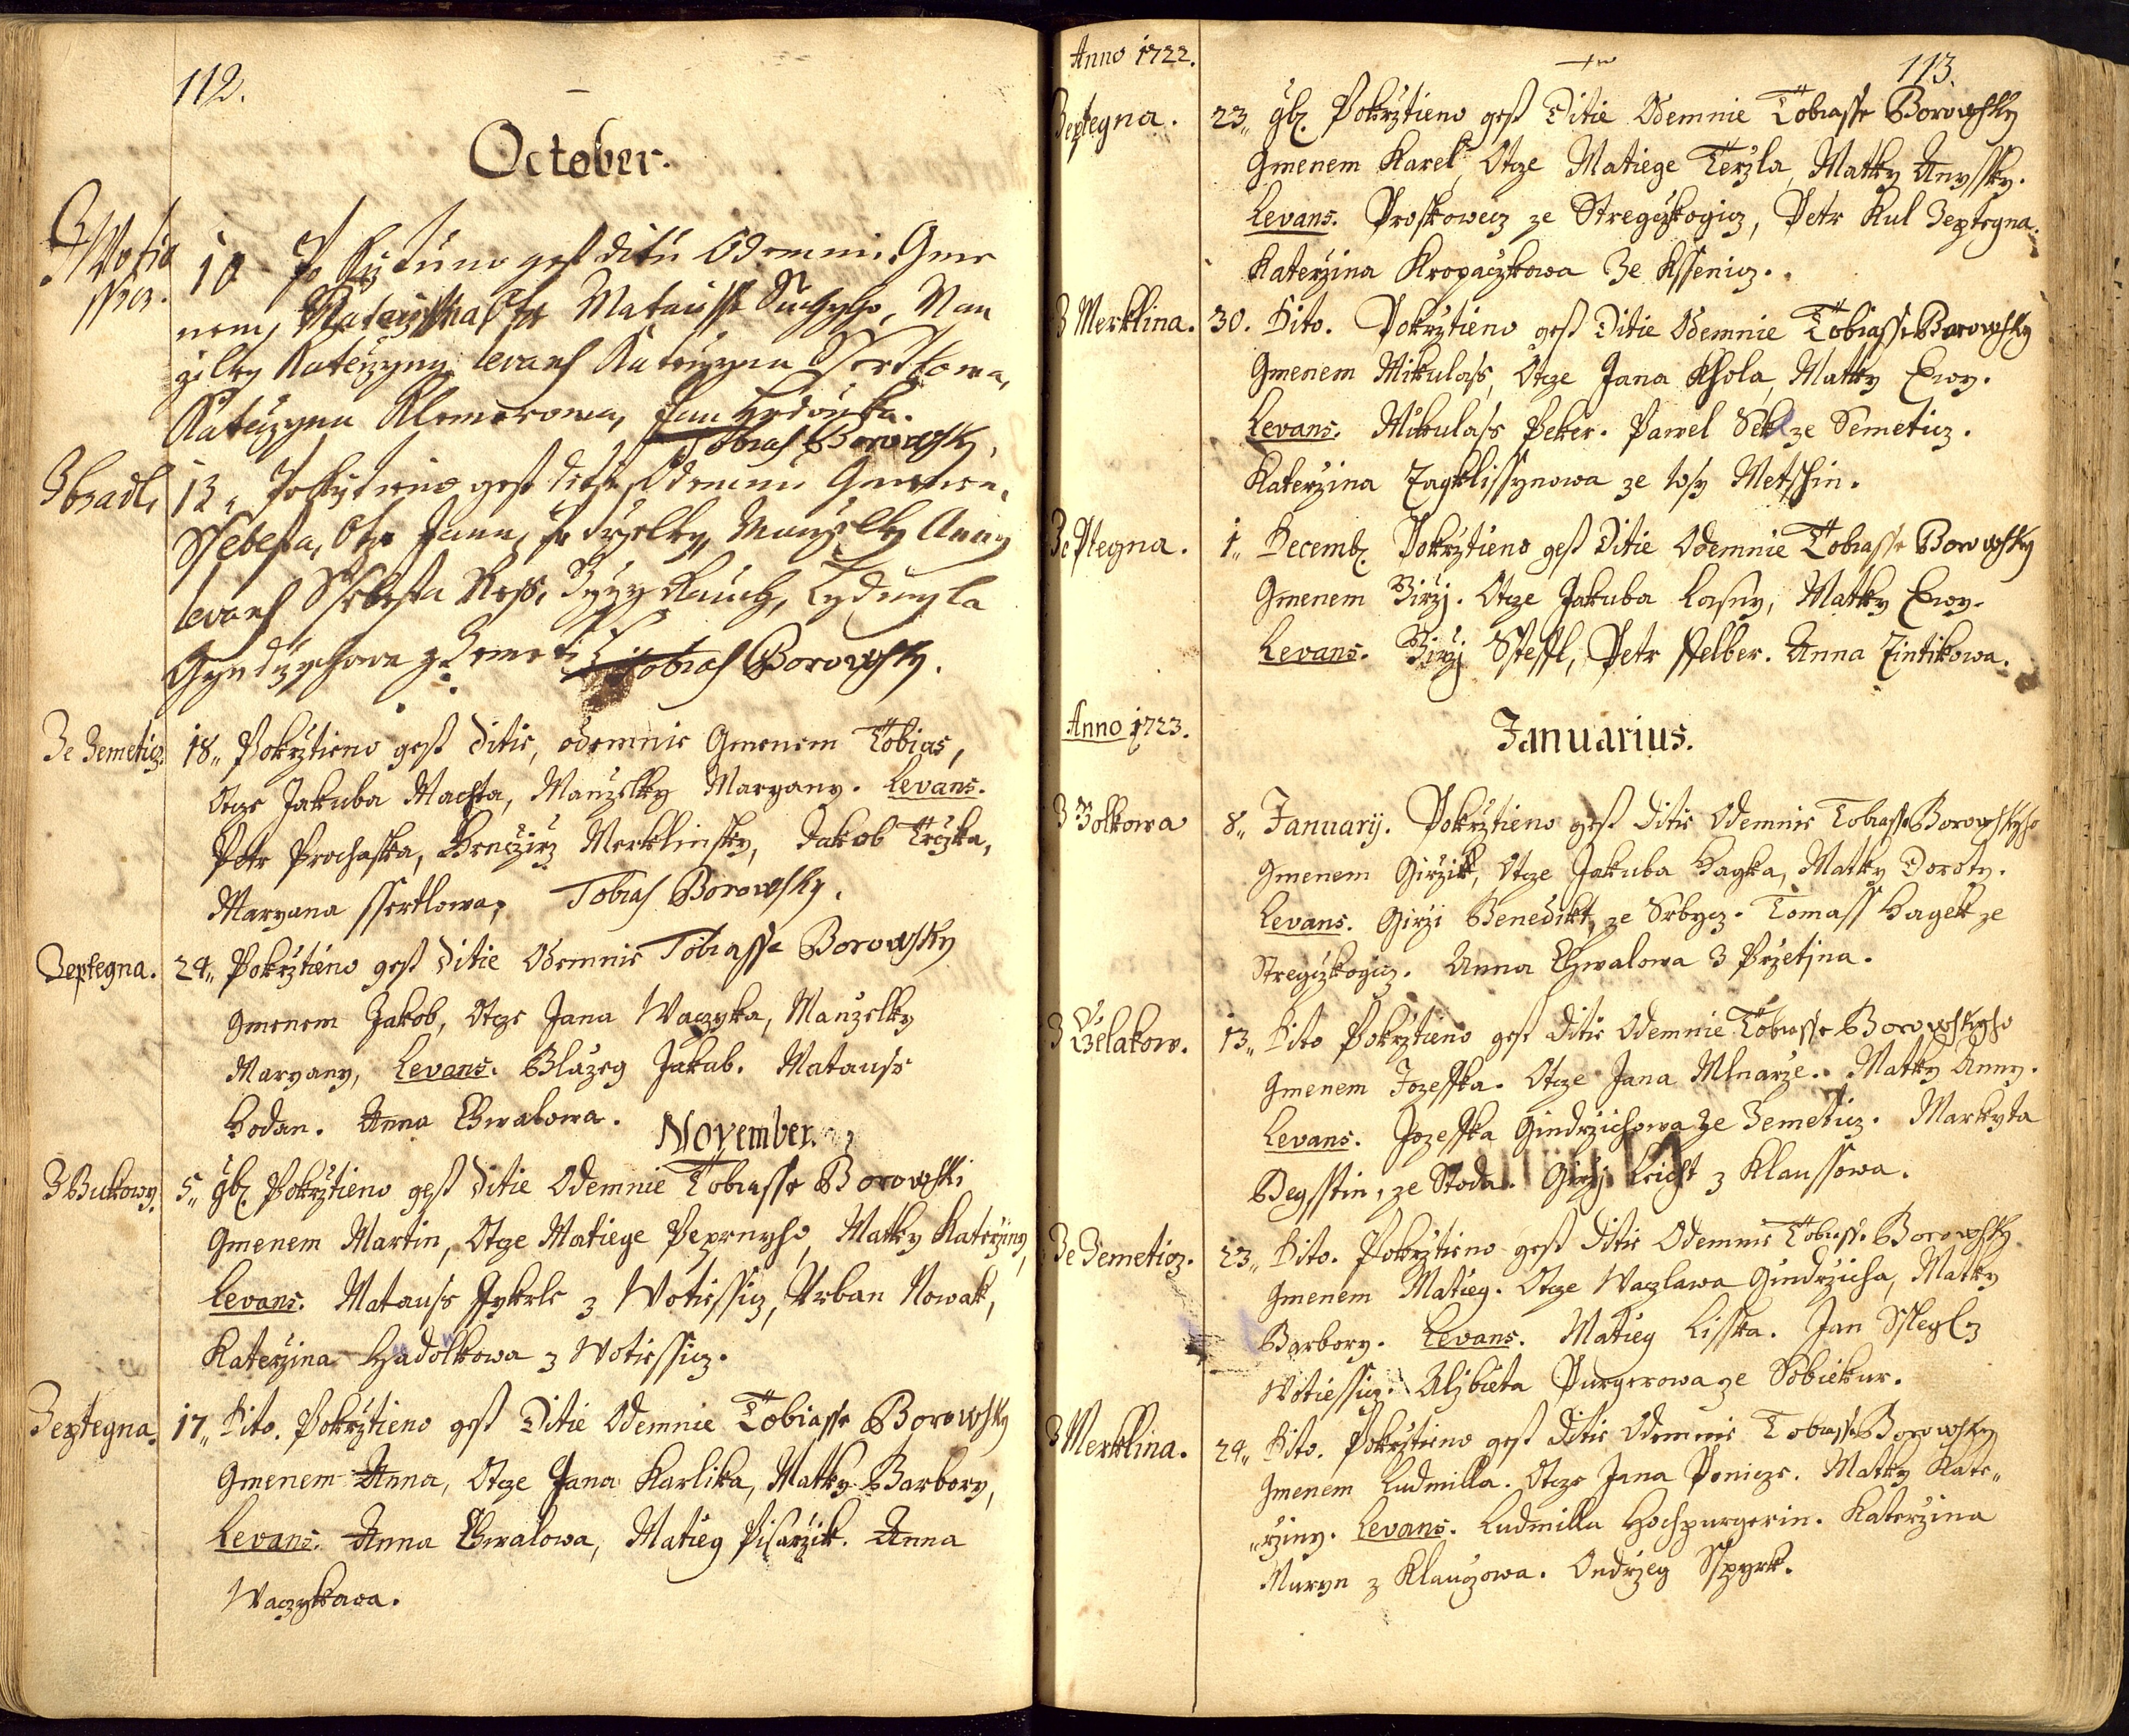 112.
October.
Z Wotie
ssicz.
10 Pokrztieno gest ditie Odemnie Gme
nem, Matausse Suchyho, Man
zilky Katerzyny levans Katerzyna
Katerzyna Klemerowa, Jan
Tobias Borowsky.
Zhradl, 13,, Pokrztieno gest ditie, Odemnie Gmenem
Ssebesta, Otcze Jana, Manzelky Anny
levans Ssebesta Ress, Lydmyla
Gyndrzychowa z Zemeticz Tobias Borowsky.
Ze Zemeticz. 18,, Pokrztieno gest ditie, odemnie Gmenem Tobias,
Otcze Jakuba Machta, Manzelky Maryany. Levans.
Petr Prochaska, Merklinsky, Jakob Trczka,
Maryana ssertlowa, Tobias Borowsky.
Zeptegna. 24,, Pokrztieno gest ditie Odemnie Tobiasse Borowsky
Gmenem Jakob, Otcze Jana Waczyka, Manzelky
Maryany, Levans. Blazeg Jakub. Matauss
Hodan. Anna Chwalowa.
November.
Z Bukowy. 5,, 9b[ris] Pokrztieno gest ditie Odemnie Tobiasse Borowski
Gmenem Martin, Otcze Matiege Peprnyho, Matky Katerziny,
Levans. Matauss Jykrle z Wotiessicz, Vrban Nowak,
Katerzina Hadolkowa z Wotiessicz.
Zeptegna. 17,, Dito. Pokrztieno gest Ditie Odemnie Tobiasse Borowsky
Gmenem Anna, Otcze Jana Karlika, Matky Barbory,
Levans. Anna Chwalowa, Matieg Pisarzik. Anna
Waczykawa.
Anno 1722.
113.
Zeptegna. 23,, 9b[ris] Pokrztieno gest Ditie Odemnie Tobiasse Borowsky
Gmenem Karel, Otcze Matiege Terzla, Matky Anyssky.
Levans. Proskowecz ze Stregczkogicz, Petr Kul Zeptegna.
Katerzina Kropaczkowa Ze Kssenicz.
Z Merklina. 30. Dito. Pokrztieno gest Ditie Odemnie Tobiasse Borowsky
Gmenem Mikulass, Otcze Jana Khola, Matky Ewy.
Levans. Mikulass Peker. Pawel Sek ze Semeticz.
Katerzina Zagklissynowa ze wsy Metschin.
Ze Ptegna. 1,, Decemb. Pokrztieno gest Ditie Odemnie Tobiasse Borowsky
Gmenem Jirzj. Otcze Jakuba Lasny, Matky Ewy.
Levans. Jirzj Steffl, Petr ffelber. Anna Zintikowa.
Anno 1723.
Januarius.
Z Bolkowa 8,, Januarij. Pokrztieno gest ditie Odemnie Tobiasse Borowskyho
Gmenem Girzik, Otcze Jakuba Hagka, Matky Doroty.
Levans. Girzi Benedikt, ze Srbycz. Tomass Hagek ze
Stregczkogicz. Anna Chwalowa Z Przetjna.
Z Gzelakow. 13,, Dito Pokrztieno gest ditie Odemnie Tobiasse Borowskyho
Gmenem Jozeffka. Otcze Jana Mlnarze. Matky Anny.
Levans. Jozeffka Gindrzichowa Ze Zemeticz. Markyta
Begsstin, ze Stoda. Girzj Leicht z Klaussowa.
Ze Zemeticz. 23,, Dito. Pokrztieno gest ditie Odemnie Tobiasse Borowsky
Gmenem Matieg. Otcze Waczlawa Gindrzicha, Matky
Barbory. Levans. Matieg Lisska. Jan Sslegl z
Wotiessicz. Aljbieta Purgerowa ze Sobiekur.
Z Merklina. 24,, Dito. Pokrztieno gest ditie Odemnie Tobiasse Borowsky
Gmenem Ludmilla. Otcze Jana Ponicze. Matky Kate„
„rziny. Levans. Ludmilla Hochpurgerin. Katerzina
Muryn z Klauczowa. Ondrzeg Sspyrk.